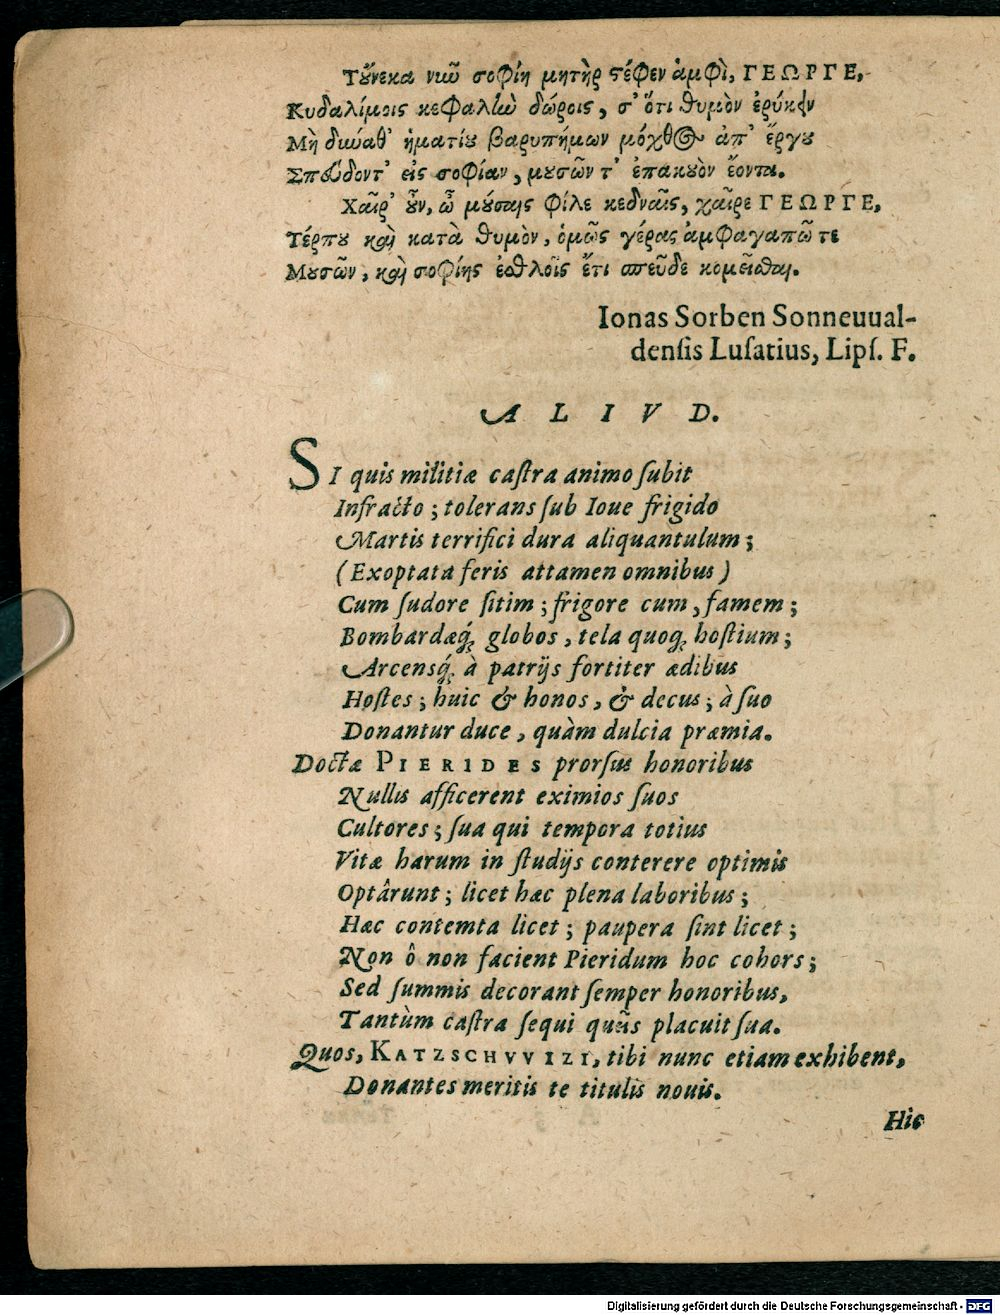 Τȣ́νεκα νιῶ σοφίη μητὴρ ϛέφεν ἀμφὶ, ΓΕΩΡΓΕ,
Κυδαλίμοις κεφαλιὼ δώροις, σ' ὅτι θυμὸν ἐρύκειν
Μὴ δυνάθ' ἡματίȣ βαρυπήμων μόχθος ἀπ' ἔργȣ
Σπεύδοντ' εἰς σοφίαν, μȣσῶν τ' ἐπακȣὸν ἔοντα.
Χαῖρ' ȣ̓ν, ὦ μȣ́σαις φίλε κεδναῖς, χαῖρε ΓΕΩΡΓΕ,
Τέρπȣ καὶ κατὰ θυμὸν, ὁμῶς γέρας ἀμφαγαπῶ τε
Μȣσῶν, καὶ σοφίης ἐσθλοῖς ἔτι σπεῦδε κομεῖσθαι.
Ionas Sorben Sonneuual-
denſis Luſatius, Lipſ. F.
ALIVD.
SI quis militiæ caſtra animo ſubit
Infracto; tolerans ſub Ioue frigido
Martis terrifici dura aliquantulum;
(Exoptata feris attamen omnibus)
Cum ſudore ſitim; frigore cum, famem;
Bombardæq́; globos, tela quoq; hoſtium;
Arcensq́; à patrijs fortiter ædibus
Hoſtes; huic & honos, & decus; à ſuo
Donantur duce, quàm dulcia præmia.
Doctæ PIERIDES prorſus honoribus
Nullis afficerent eximios ſuos
Cultores; ſua qui tempora totius
Vitæ harum in ſtudijs conterere optimis
Optârunt; licet hæc plena laboribus;
Hæc contemta licet; paupera ſint licet;
Non ô non facient Pieridum hoc cohors;
Sed ſummis decorant ſemper honoribus,
Tantùm caſtra ſequi queîs placuit ſua.
Quos, KATZSCHVVIZI, tibi nunc etiam exhibent,
Donantes meritis te titulis nouis.
Hic